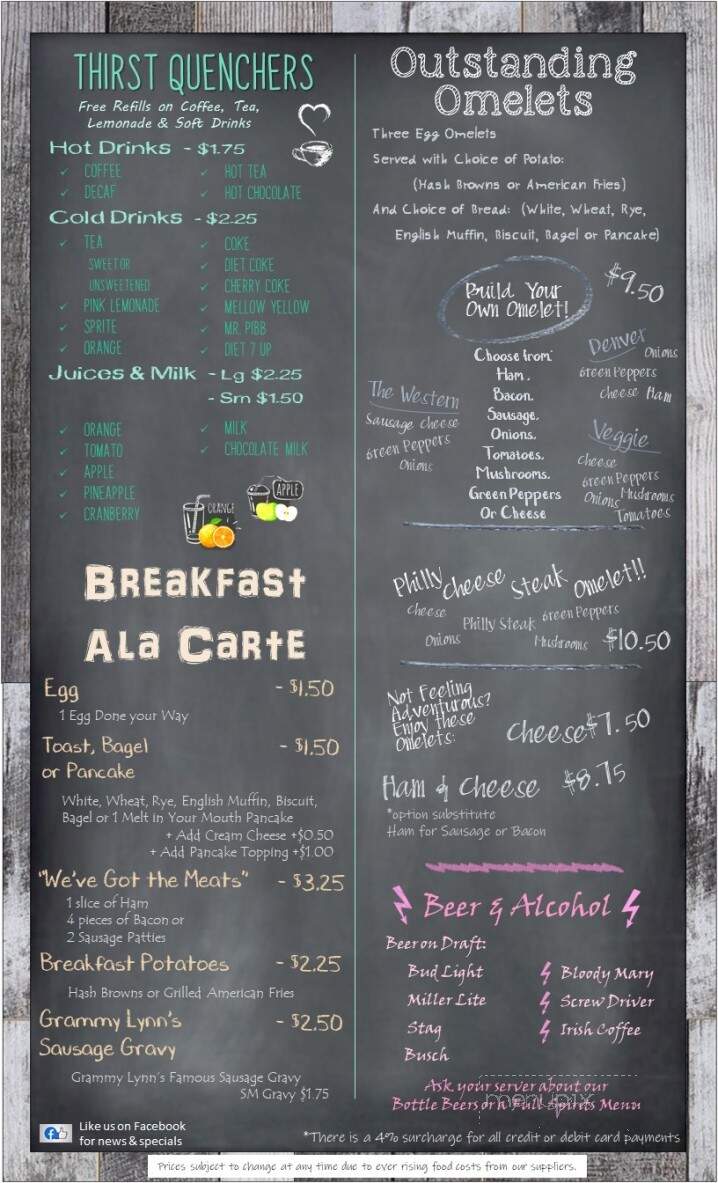 THIRST QUENCHERS
Free Refills on Coffee, Tea,
Lemonade & Soft Drinks
Hot Drinks - $1.75
✓ COFFEE
✓ DECAF
✓ HOT TEA
✓ HOT CHOCOLATE
Cold Drinks - $2.25
✓ TEA
SWEET OR
UNSWEETENED
✓ PINK LEMONADE
✓ SPRITE
✓ ORANGE
✓ COKE
✓ DIET COKE
✓ CHERRY COKE
✓ MELLOW YELLOW
✓ MR. PIBB
✓ DIET 7 UP
Juices & Milk - Lg $2.25
- Sm $1.50
✓ ORANGE
✓ TOMATO
✓ APPLE
✓ PINEAPPLE
✓ CRANBERRY
✓ MILK
✓ CHOCOLATE MILK
ORANGE
APPLE
BREAKFAST
ALA CARTE
Egg - $1.50
1 Egg Done your Way
Toast, Bagel - $1.50
or Pancake
White, Wheat, Rye, English Muffin, Biscuit,
Bagel or 1 Melt in Your Mouth Pancake
+ Add Cream Cheese +$0.50
+ Add Pancake Topping +$1.00
"We've Got the Meats" - $3.25
1 slice of Ham
4 pieces of Bacon or
2 Sausage Patties
Breakfast Potatoes - $2.25
Hash Browns or Grilled American Fries
Grammy Lynn's - $2.50
Sausage Gravy
Grammy Lynn's Famous Sausage Gravy
SM Gravy $1.75
Like us on Facebook
for news & specials
Outstanding
Omelets
Three Egg Omelets
Served with Choice of Potato:
(Hash Browns or American Fries)
And Choice of Bread: (White, Wheat, Rye,
English Muffin, Biscuit, Bagel or Pancake)
Build Your
Own Omelet!
$9.50
Choose from:
Ham,
Bacon,
Sausage,
Onions,
Tomatoes,
Mushrooms,
Green Peppers
Or Cheese
The Western
Sausage Cheese
Green Peppers
Onions
Denver
Onions
Green Peppers
Cheese Ham
Veggie
Cheese
Green Peppers
Onions Mushrooms
Tomatoes
Philly Cheese Steak Omelet!!
Cheese Philly Steak Green Peppers
Onions Mushrooms $10.50
Not Feeling
Adventurous?
Enjoy these
Omelets:
Cheese $7.50
Ham & Cheese $8.75
*option substitute
Ham for Sausage or Bacon
Beer & Alcohol
Beer on Draft:
Bud Light
Miller Lite
Stag
Busch
Bloody Mary
Screw Driver
Irish Coffee
Ask your server about our
Bottle Beers or a Full Spirits Menu
menupix
*There is a 4% surcharge for all credit or debit card payments
Prices subject to change at any time due to ever rising food costs from our suppliers.